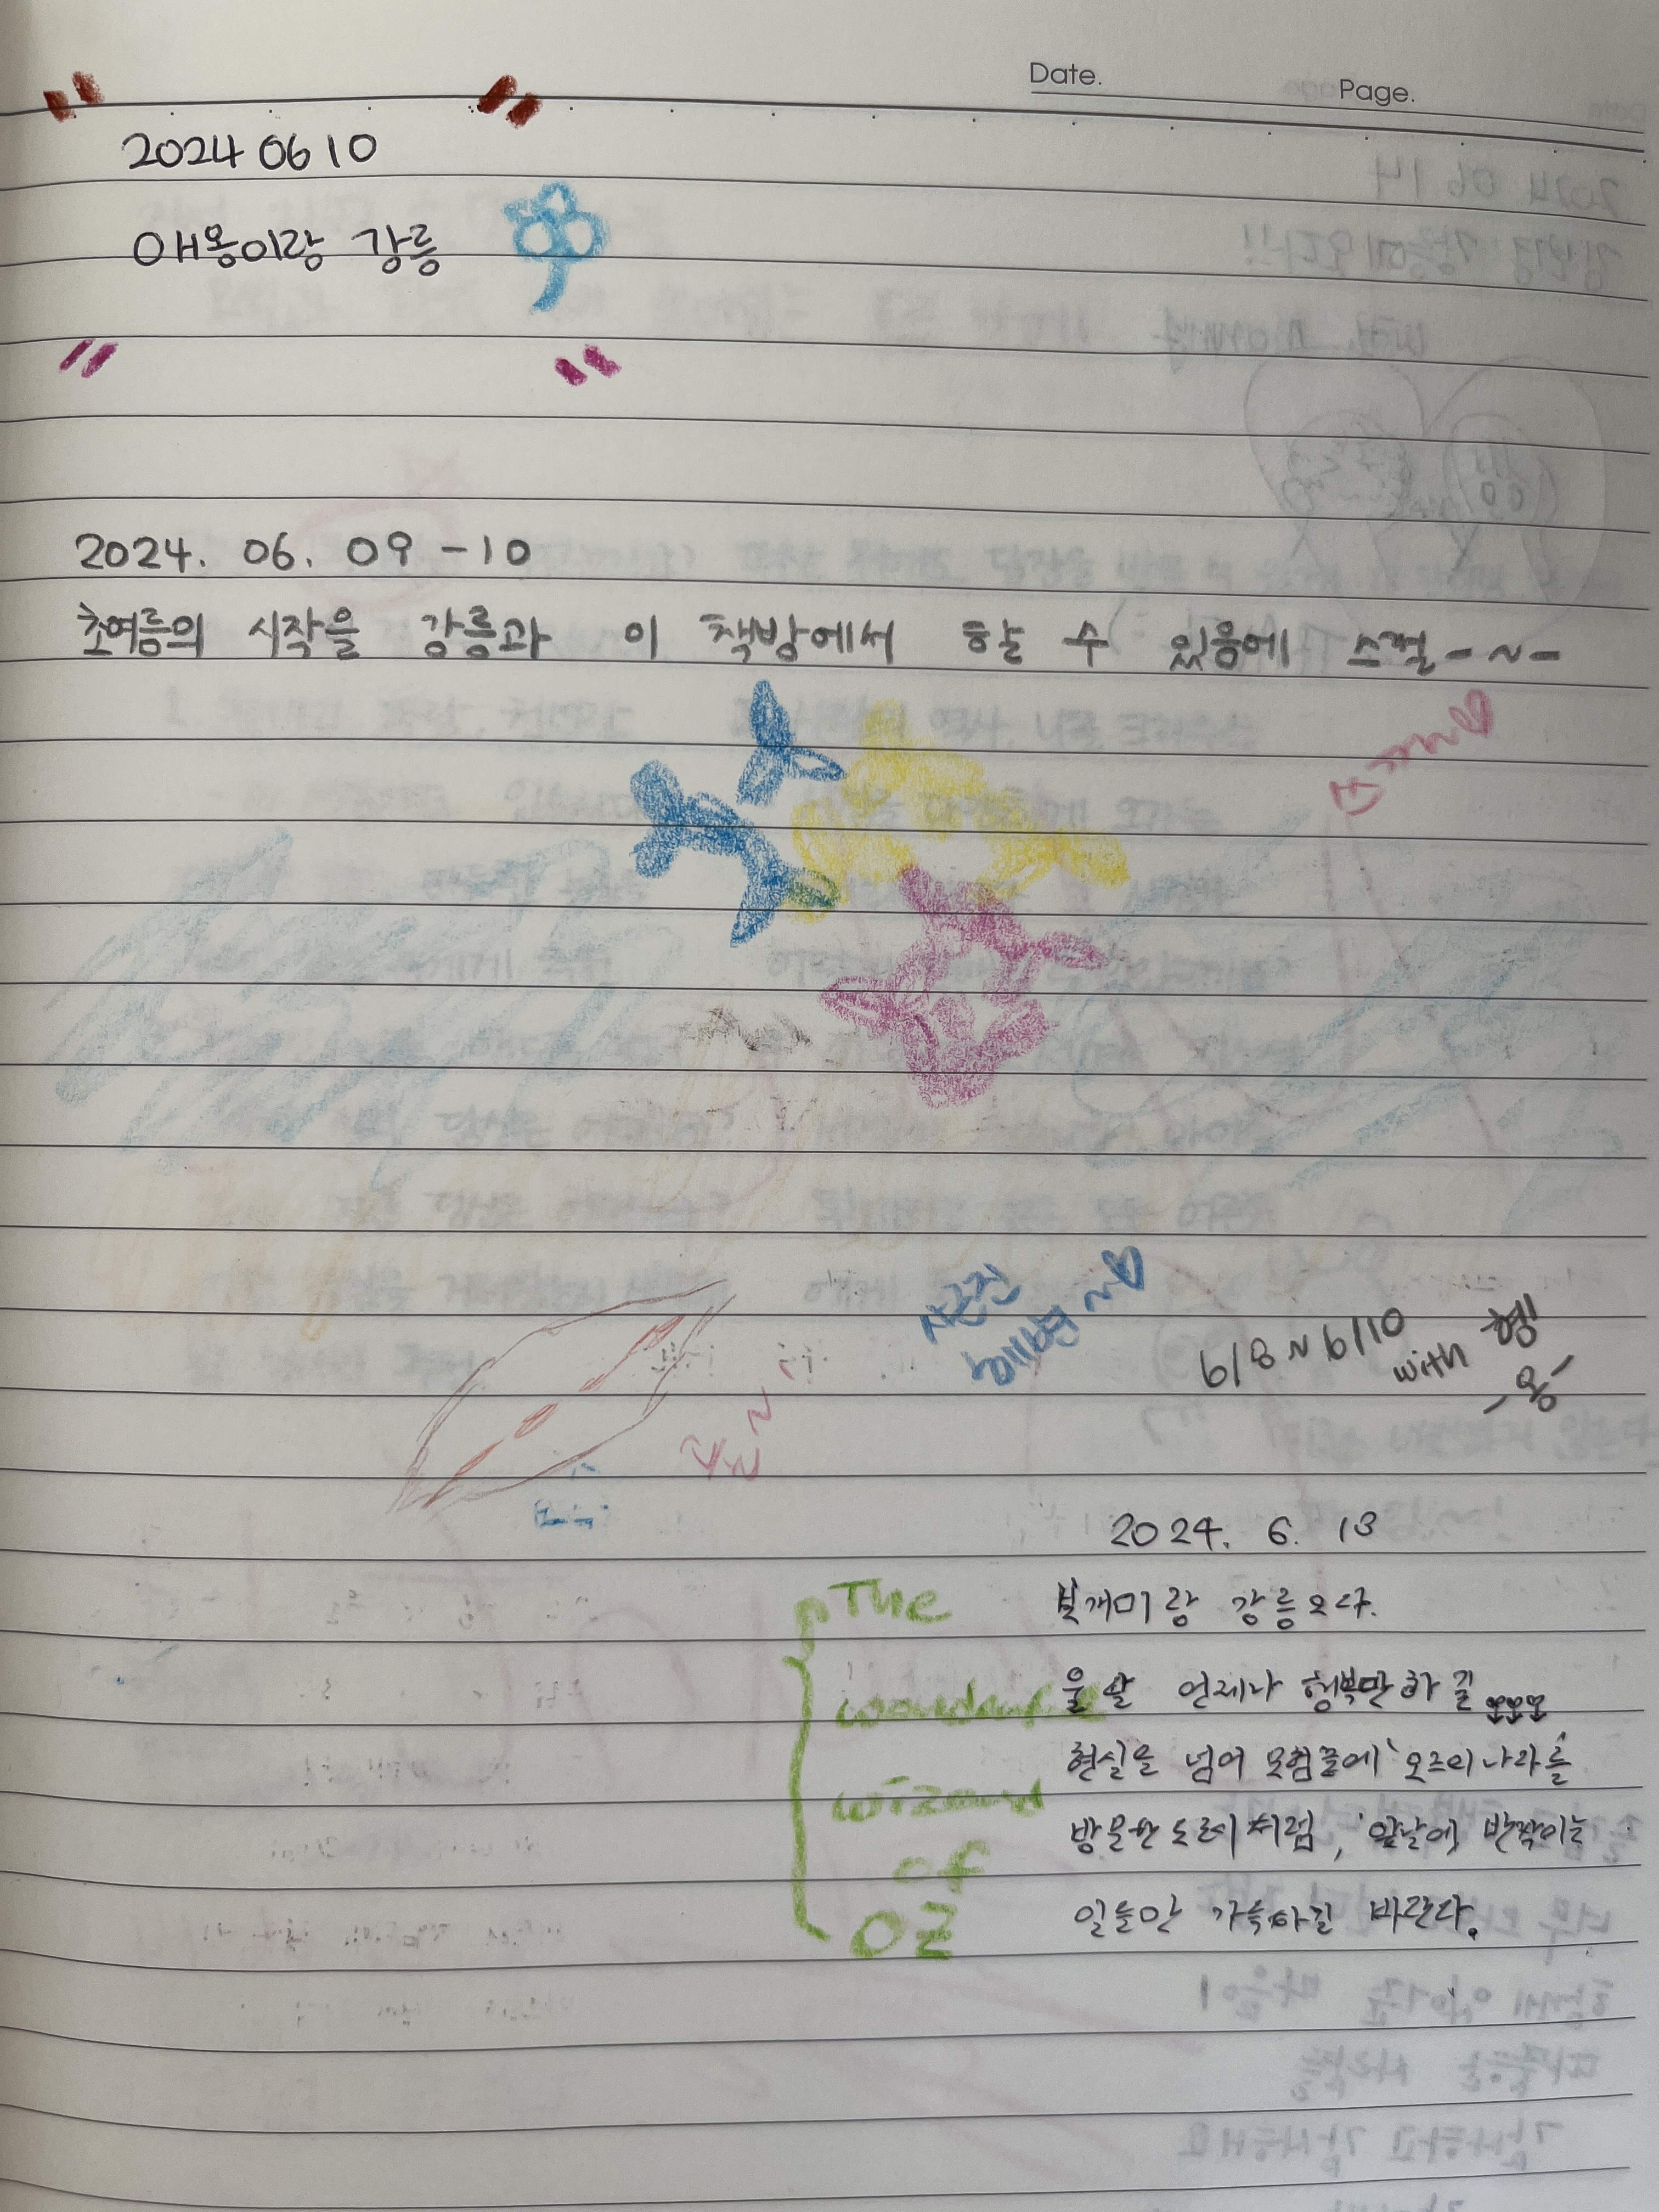 Date. Page.
2024 06 10
애옹이랑 강릉
2024. 06. 09 - 10
초여름의 시작을 강릉과 이 책방에서 할 수 있음에 스껄-~-
사근진
해변~♡
6/8~6/10
with 헹
-옹-
2024. 6. 13
The
wonderful
wizard
of
OZ
봊개미랑 강릉오다.
울 알 언제나 행복만하길
현실을 넘어 모험끝에 '오즈의 나라를
방문한 도로시처럼,' 앞날에 반짝이는
일들만 가득하길 바란다.